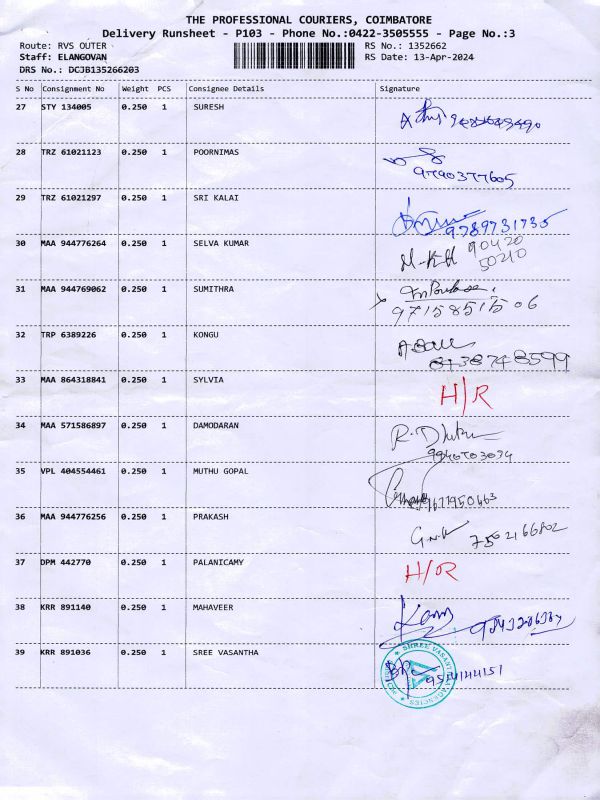 THE PROFESSIONAL COURIERS, COIMBATORE
Delivery Runsheet - P103 - Phone No.:0422-3505555 - Page No.:3
Route: RVS OUTER
RS No.: 1352662
Staff: ELANGOVAN
RS Date: 13-Apr-2024
DRS No.: DCJB135266203
S No Consignment No Weight PCS Consignee Details Signature
27 STY 134005 0.250 1 SURESH
28 TRZ 61021123 0.250 1 POORNIMAS
9790377605
29 TRZ 61021297 0.250 1 SRI KALAI
9789731735
30 MAA 944776264 0.250 1 SELVA KUMAR
90420
50210
31 MAA 944769062 0.250 1 SUMITHRA
9715851506
32 TRP 6389226 0.250 1 KONGU
8438748599
33 MAA 864318841 0.250 1 SYLVIA H/R
34 MAA 571586897 0.250 1 DAMODARAN
35 VPL 404554461 0.250 1 MUTHU GOPAL
9677950663
36 MAA 944776256 0.250 1 PRAKASH
7502166802
37 DPM 442770 0.250 1 PALANICAMY H/OR
38 KRR 891140 0.250 1 MAHAVEER
39 KRR 891036 0.250 1 SREE VASANTHA